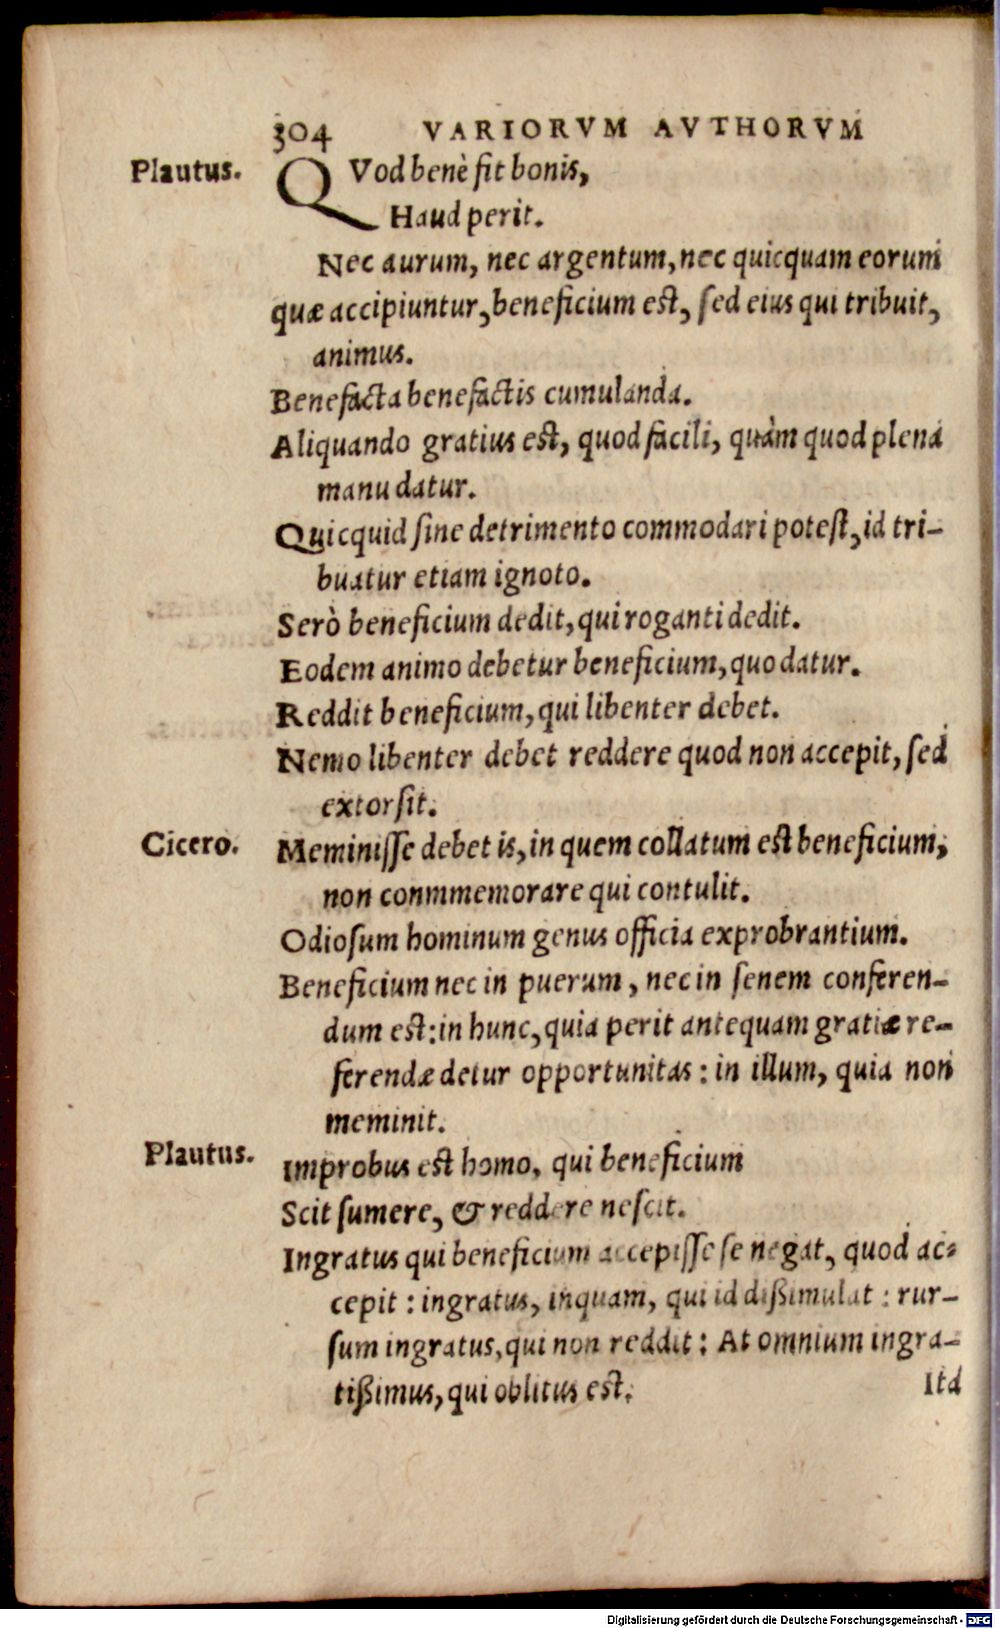 304 VARIORVM AVTHORVM
Plautus. QVod benè fit bonis,
Haud perit.
Nec aurum, nec argentum, nec quicquam eorum
quæ accipiuntur, beneficium est, sed eius qui tribuit,
animus.
Benefacta benefactis cumulanda.
Aliquando gratius est, quod facili, quàm quod plena
manu datur.
Quicquid sine detrimento commodari potest, id tri-
buatur etiam ignoto.
Serò beneficium dedit, qui roganti dedit.
Eodem animo debetur beneficium, quo datur.
Reddit beneficium, qui libenter debet.
Nemo libenter debet reddere quod non accepit, sed
extorsit.
Cicero. Meminisse debet is, in quem collatum est beneficium,
non conmmemorare qui contulit.
Odiosum hominum genus officia exprobrantium.
Beneficium nec in puerum, nec in senem conferen-
dum est: in hunc, quia perit antequam gratiæ re-
ferendæ detur opportunitas: in illum, quia non
meminit.
Plautus. Improbus est homo, qui beneficium
Scit sumere, & reddere nescit.
Ingratus qui beneficium accepisse se negat, quod ac-
cepit: ingratus, inquam, qui id dißimulat: rur-
sum ingratus, qui non reddit: At omnium ingra-
tißimus, qui oblitus est.
Ita
Digitalisierung gefördert durch die Deutsche Forschungsgemeinschaft - DFG